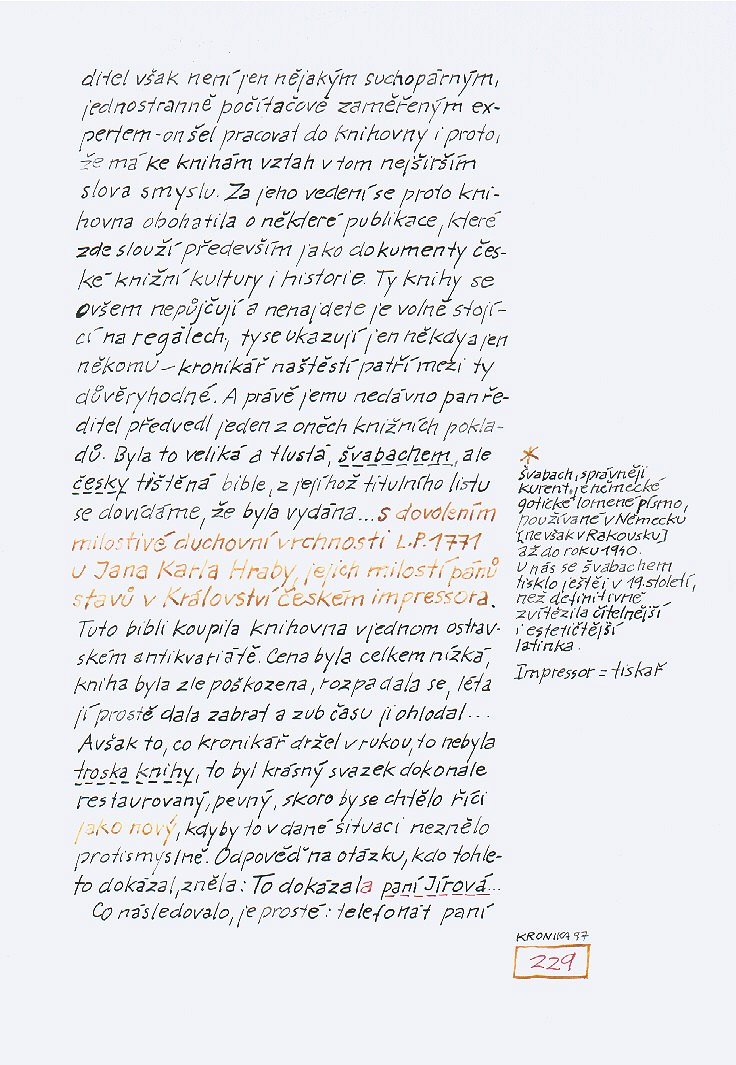 ditel však není jen nějakým suchopárným,
jednostranně počítačově zaměřeným ex-
pertem - on šel pracovat do knihovny i proto,
že má ke knihám vztah v tom nejširším
slova smyslu. Za jeho vedení se proto kni-
hovna obohatila o některé publikace, které
zde slouží především jako dokumenty čes-
ké knižní kultury i historie. Ty knihy se
ovšem nepůjčují a nenajdete je volně stojí-
cí na regálech, ty se ukazují jen někdy a jen
někomu – kronikář naštěstí patří mezi ty
důvěryhodné. A právě jemu nedávno pan ře-
ditel předvedl jeden z oněch knižních pokla-
dů. Byla to veliká a tlustá, švabachem, ale
česky tištěná bible, z jejíhož titulního listu
se dovídáme, že byla vydána... s dovolením
milostivé duchovní vrchnosti L.P. 1771
u Jana Karla Hraby, jejich milostí pánů
stavů v Království českém impressora.
Tuto bibli koupila knihovna v jednom ostrav-
ském antikvariátě. Cena byla celkem nízká,
kniha byla zle poškozena, rozpadala se, léta
jí prostě dala zabrat a zub času ji ohlodal...
Avšak to, co kronikář držel v rukou, to nebyla
troska knihy, to byl krásný svazek dokonale
restaurovaný, pevný, skoro by se chtělo říci
jako nový, kdyby to v dané situaci neznělo
protismyslně. Odpověď na otázku, kdo tohle-
to dokázal, zněla: To dokázala paní Jírová...
Co následovalo, je prosté: telefonát paní
*
Švabach, správněji
kurent, je německé
gotické lomené písmo,
používané v Německu
[ne však v Rakousku]
až do roku 1940.
U nás se švabachem
tisklo ještě i v 19. století,
než definitivně
zvítězila čitelnější
i estetičtější
latinka.
Impressor = tiskař
KRONIKA 97
229